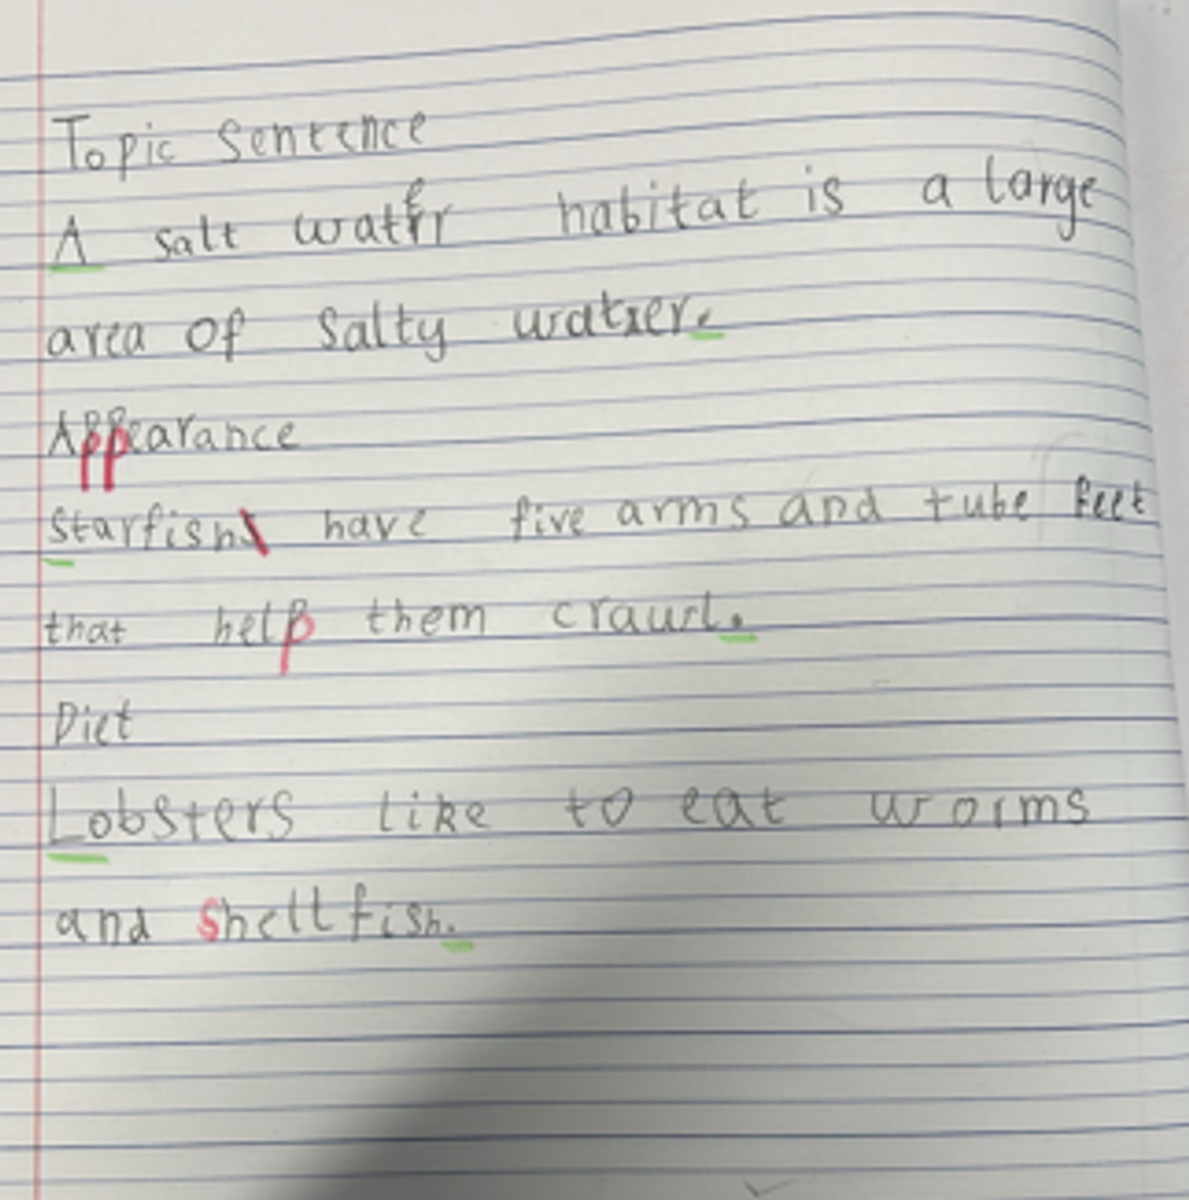 Topic Sentence
A salt water habitat is a large
area of Salty water.
Appearance
Starfish have five arms and tube feet
that help them crawl.
Diet
Lobsters like to eat worms
and shellfish.